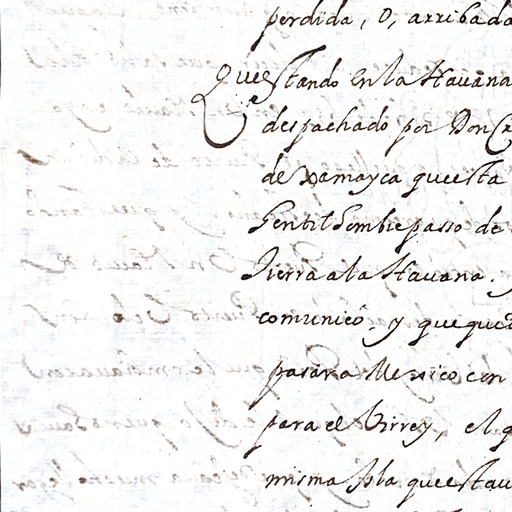 perdida, O, arribada
Questando en la Havana
despachado por Don Cr
de xamayca questa
Gentilhombre passo de
Tierra a la Havana. y
comunicó, y que qued
pasara a Mexico con
para el Virrey, el q
misma Isla questau